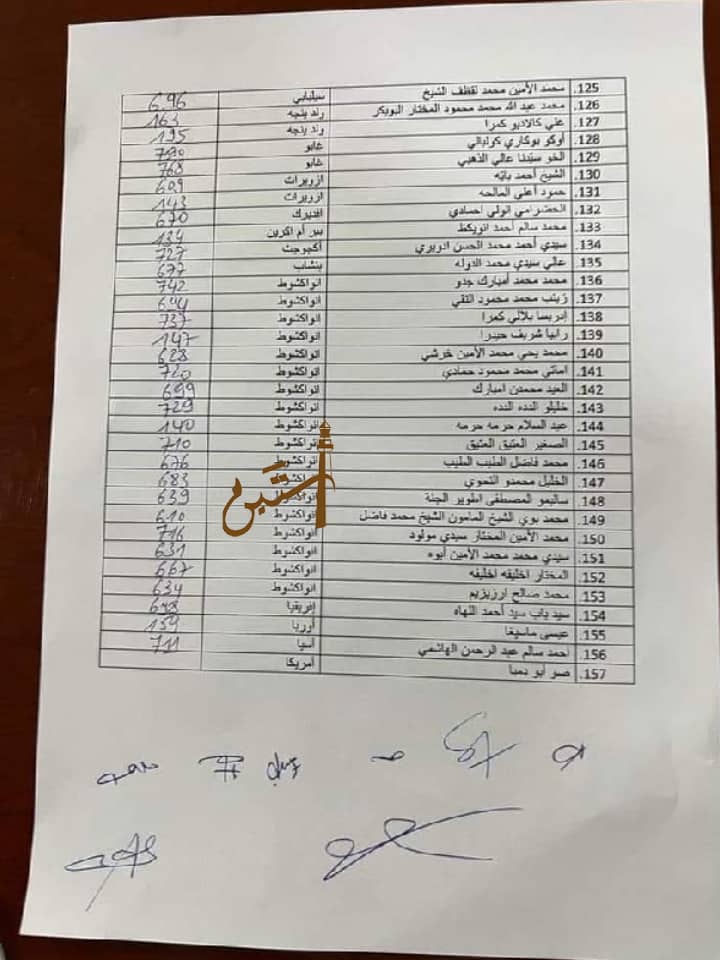 125. محمد الأمين محمد لقظف الشيخ سيلبابي 696
126. محمد عبد الله محمد محمود المختار البوبكر ولد ينجه 163
127. علي كالاديو كمرا ولد ينجه 195
128. أوكو بوكاري كوليبالي غابو
129. الخو سيدنا عالي الذهبي غابو 768
130. الشيخ أحمد بايه ازويرات 609
131. حمود أعلي المالحه ازويرات 143
132. الحضرامي الولي احمادي افديرك 670
133. محمد سالم أحمد انويكظ بير أم اكرين 134
134. سيدي أحمد محمد الحسن ادويري أكجوجت 727
135. عالي سيدي محمد الدوله بنشاب 677
136. محمد محمد أمبارك جدو انواكشوط 742
137. زينب محمد محمود التقي انواكشوط 694
138. إدريسا بلالي كمرا انواكشوط 737
139. رابيا شريف حيدرا انواكشوط 147
140. محمد يحي محمد الأمين خرشي انواكشوط 628
141. اماتي محمد محمود حمادي انواكشوط 720
142. العيد محمدن امبارك انواكشوط 699
143. خليلو الدده الدده انواكشوط 729
144. عبد السلام حرمه حرمه انواكشوط 140
145. الصغير العتيق العتيق انواكشوط 710
146. محمد فاضل الطيب الطيب انواكشوط 676
147. الخليل محمدو النحوي انواكشوط 683
148. ساليمو المصطفى اطوير الجنة انواكشوط 639
149. محمد بوي الشيخ المامون الشيخ محمد فاضل انواكشوط 610
150. محمد الأمين المختار سيدي مولود انواكشوط 716
151. سيدي محمد محمد الأمين أبوه انواكشوط 631
152. المختار اخليفه اخليفه انواكشوط 667
153. محمد صالح ارزيزيم انواكشوط 634
154. سيد باب سيد أحمد اللهاه إفريقيا 698
155. عيسى ماسيغا أوربا 159
156. أحمد سالم عبد الرحمن الهاشمي آسيا 711
157. صو أبو دمبا أمريكا